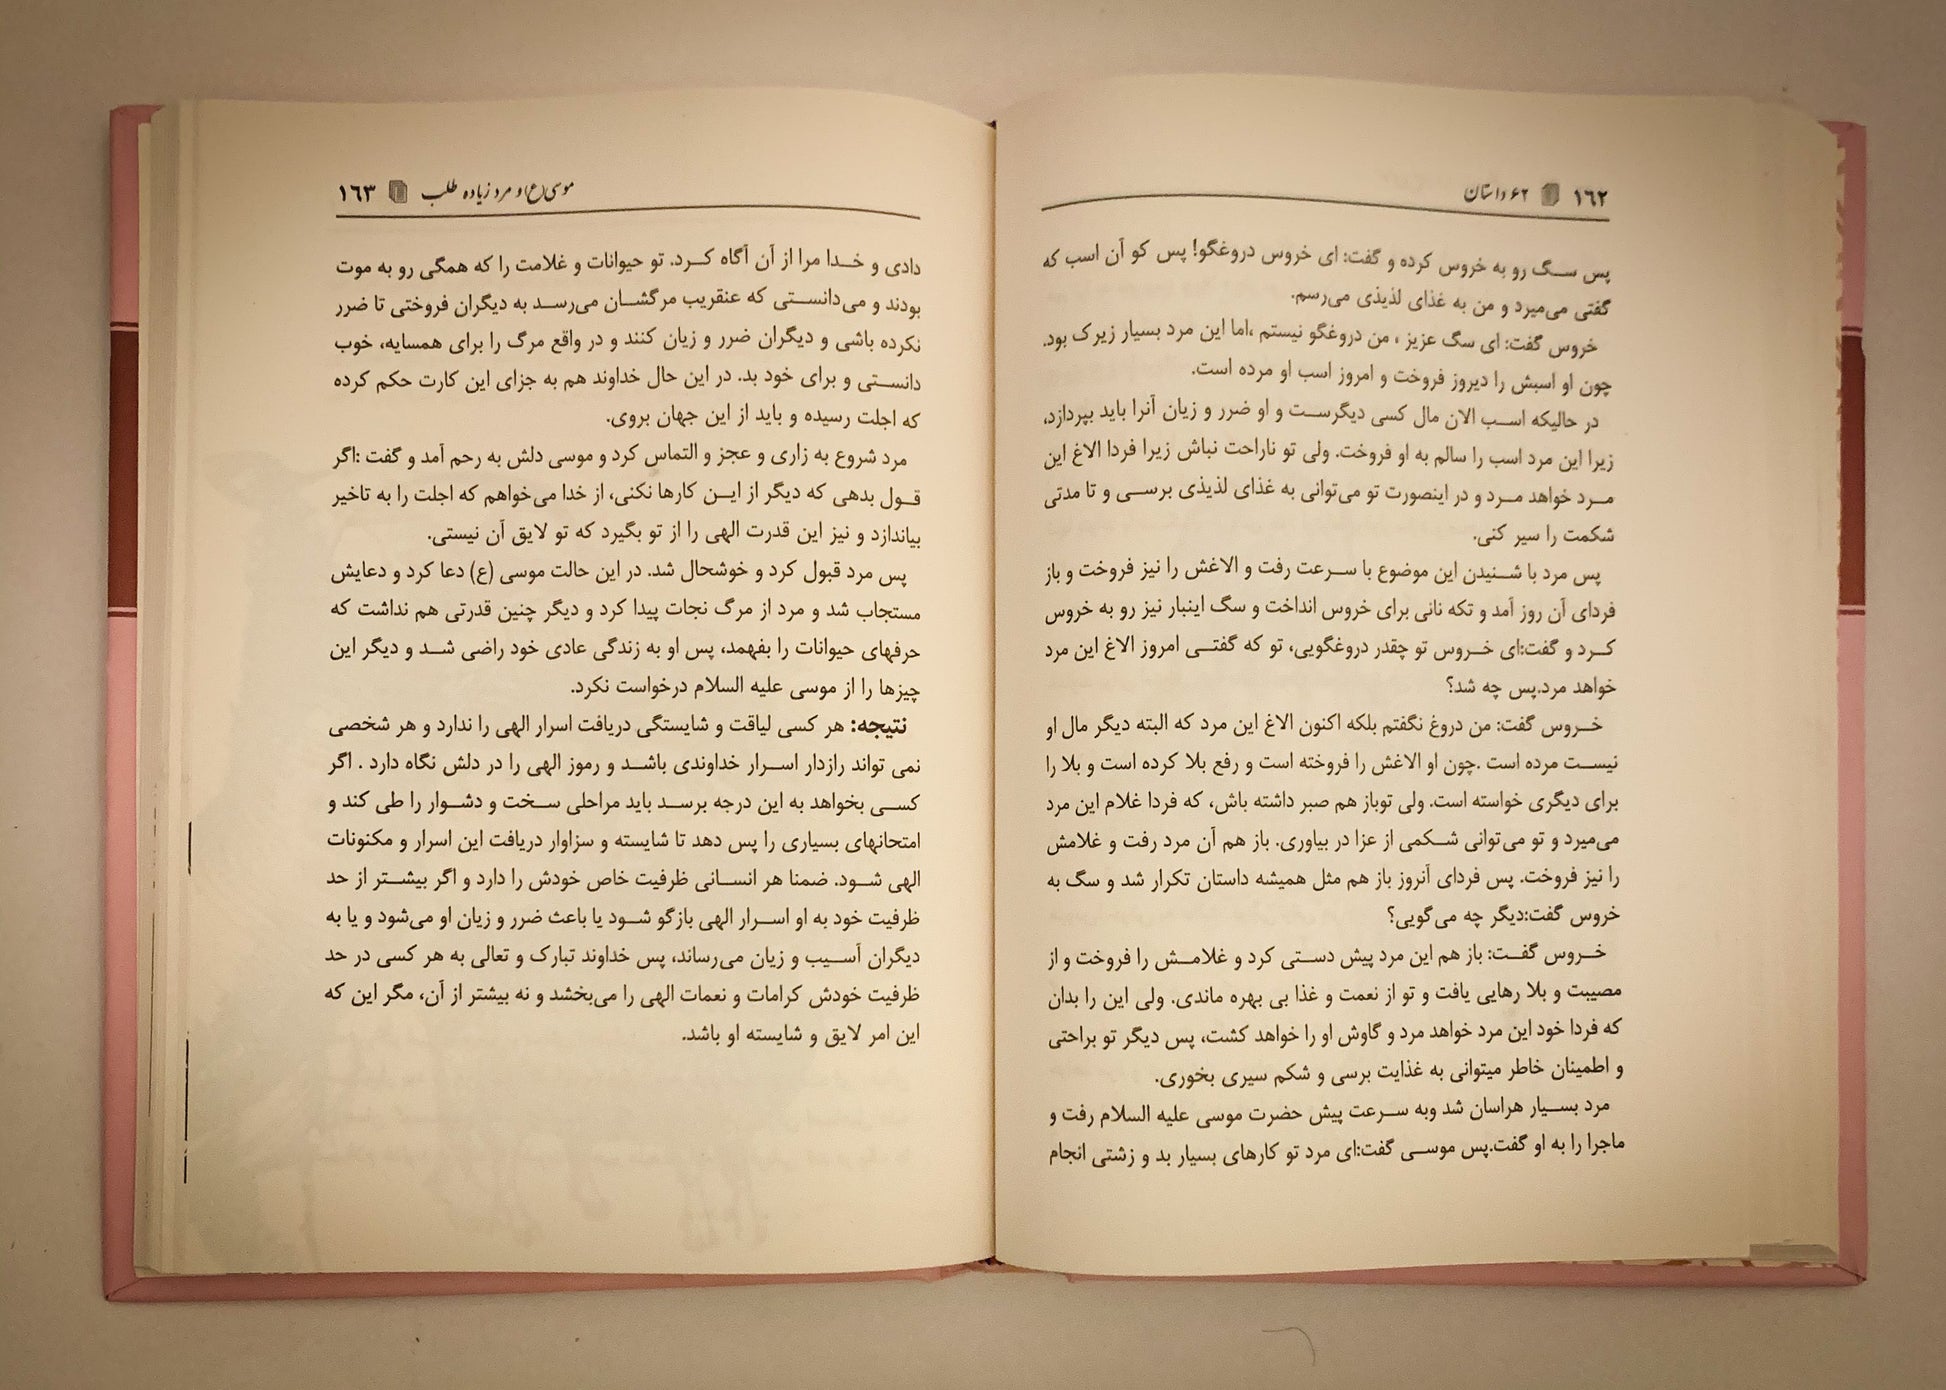 ۱۶۲ ۶۲ داستان
پس سگ رو به خروس کرده و گفت: ای خروس دروغگو! پس کو آن اسب که
گفتی می‌میرد و من به غذای لذیذی می‌رسم.
خروس گفت: ای سگ عزیز ، من دروغگو نیستم ،اما این مرد بسیار زیرک بود.
چون او اسبش را دیروز فروخت و امروز اسب او مرده است.
در حالیکه اسب الان مال کسی دیگرست و او ضرر و زیان آنرا باید بپردازد،
زیرا این مرد اسب را سالم به او فروخت. ولی تو ناراحت نباش زیرا فردا الاغ این
مرد خواهد مرد و در اینصورت تو می‌توانی به غذای لذیذی برسی و تا مدتی
شکمت را سیر کنی.
پس مرد با شنیدن این موضوع با سرعت رفت و الاغش را نیز فروخت و باز
فردای آن روز آمد و تکه نانی برای خروس انداخت و سگ اینبار نیز رو به خروس
کرد و گفت:ای خروس تو چقدر دروغگویی، تو که گفتی امروز الاغ این مرد
خواهد مرد.پس چه شد؟
خروس گفت: من دروغ نگفتم بلکه اکنون الاغ این مرد که البته دیگر مال او
نیست مرده است .چون او الاغش را فروخته است و رفع بلا کرده است و بلا را
برای دیگری خواسته است. ولی توباز هم صبر داشته باش، که فردا غلام این مرد
می‌میرد و تو می‌توانی شکمی از عزا در بیاوری. باز هم آن مرد رفت و غلامش
را نیز فروخت. پس فردای آنروز باز هم مثل همیشه داستان تکرار شد و سگ به
خروس گفت:دیگر چه می‌گویی؟
خروس گفت: باز هم این مرد پیش دستی کرد و غلامش را فروخت و از
مصیبت و بلا رهایی یافت و تو از نعمت و غذا بی بهره ماندی. ولی این را بدان
که فردا خود این مرد خواهد مرد و گاوش او را خواهد کشت، پس دیگر تو براحتی
و اطمینان خاطر میتوانی به غذایت برسی و شکم سیری بخوری.
مرد بسیار هراسان شد وبه سرعت پیش حضرت موسی علیه السلام رفت و
ماجرا را به او گفت.پس موسی گفت:ای مرد تو کارهای بسیار بد و زشتی انجام
موسی(ع) و مرد زیاده طلب ۱۶۳
دادی و خدا مرا از آن آگاه کرد. تو حیوانات و غلامت را که همگی رو به موت
بودند و می‌دانستی که عنقریب مرگشان می‌رسد به دیگران فروختی تا ضرر
نکرده باشی و دیگران ضرر و زیان کنند و در واقع مرگ را برای همسایه، خوب
دانستی و برای خود بد. در این حال خداوند هم به جزای این کارت حکم کرده
که اجلت رسیده و باید از این جهان بروی.
مرد شروع به زاری و عجز و التماس کرد و موسی دلش به رحم آمد و گفت :اگر
قول بدهی که دیگر از این کارها نکنی، از خدا می‌خواهم که اجلت را به تاخیر
بیاندازد و نیز این قدرت الهی را از تو بگیرد که تو لایق آن نیستی.
پس مرد قبول کرد و خوشحال شد. در این حالت موسی (ع) دعا کرد و دعایش
مستجاب شد و مرد از مرگ نجات پیدا کرد و دیگر چنین قدرتی هم نداشت که
حرفهای حیوانات را بفهمد، پس او به زندگی عادی خود راضی شد و دیگر این
چیزها را از موسی علیه السلام درخواست نکرد.
نتیجه: هر کسی لیاقت و شایستگی دریافت اسرار الهی را ندارد و هر شخصی
نمی تواند رازدار اسرار خداوندی باشد و رموز الهی را در دلش نگاه دارد . اگر
کسی بخواهد به این درجه برسد باید مراحلی سخت و دشوار را طی کند و
امتحانهای بسیاری را پس دهد تا شایسته و سزاوار دریافت این اسرار و مکنونات
الهی شود. ضمنا هر انسانی ظرفیت خاص خودش را دارد و اگر بیشتر از حد
ظرفیت خود به او اسرار الهی بازگو شود یا باعث ضرر و زیان او می‌شود و یا به
دیگران آسیب و زیان می‌رساند، پس خداوند تبارک و تعالی به هر کسی در حد
ظرفیت خودش کرامات و نعمات الهی را می‌بخشد و نه بیشتر از آن، مگر این که
این امر لایق و شایسته او باشد.